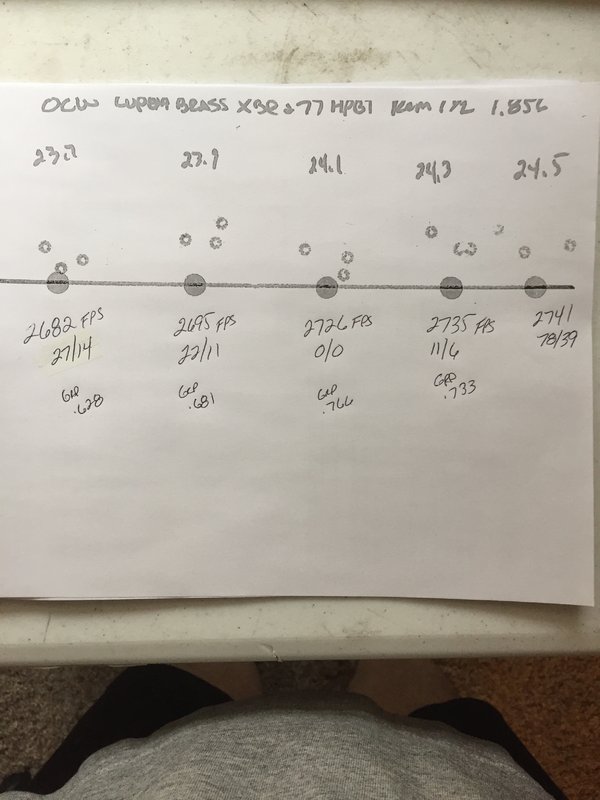 OCW LUPUA BRASS XBR 8 77 HPBT Rem 7½ 1.856
23.7 23.9 24.1 24.3 24.5
2682 FPS 2695 FPS 2726 FPS 2735 FPS 2741
27/14 22/11 0/0 11/6 78/39
GRP GRP GRP GRP
.628 .681 .766 .733